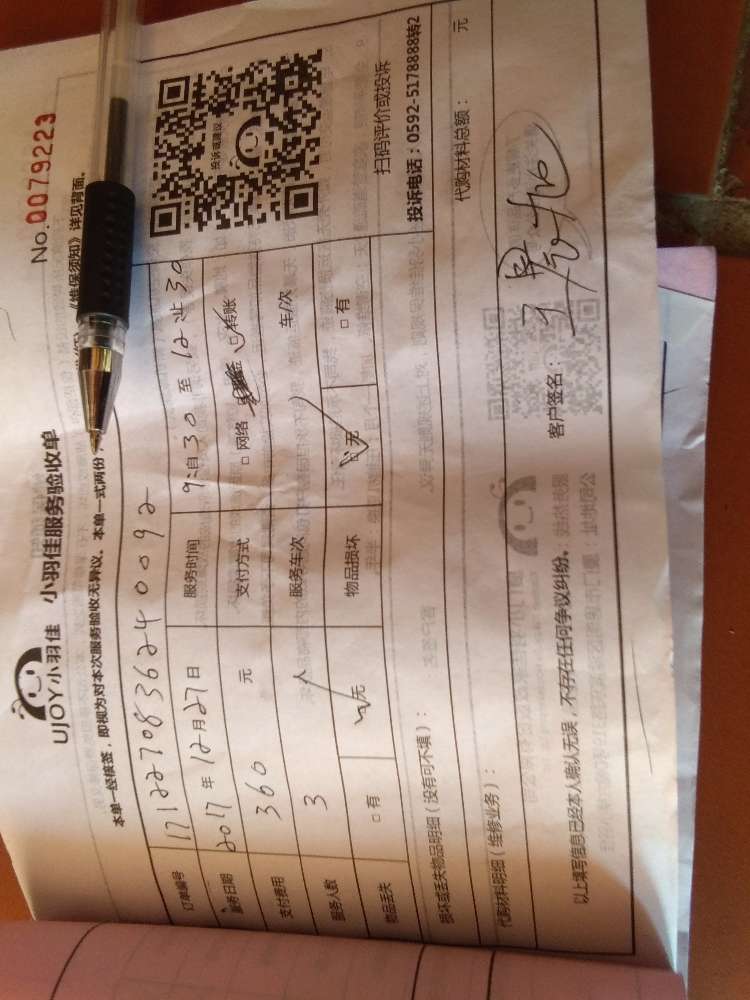 No.0079223
UJOY小羽佳 小羽佳服务验收单
本单一经核签，即视为对本次服务验收无异议。本单一式两份，
《维保须知》详见背面。
订单编号 171227083624 0092
服务日期 2017年12月27日 服务时间 9:自30至12:30
支付费用 360 元 支付方式 □网络 □转账
服务人数 3 人 服务车次 车/次
物品丢失 □有 ☑无 物品损坏 ☑无 □有
投诉或建议
扫码评价或投诉
投诉电话：0592-5178888转2
损坏或丢失物品明细（没有可不填）：
代购材料明细（维修业务）： 代购材料总额： 元
以上填写信息已经本人确认无误，不存在任何争议纠纷。 客户签名：